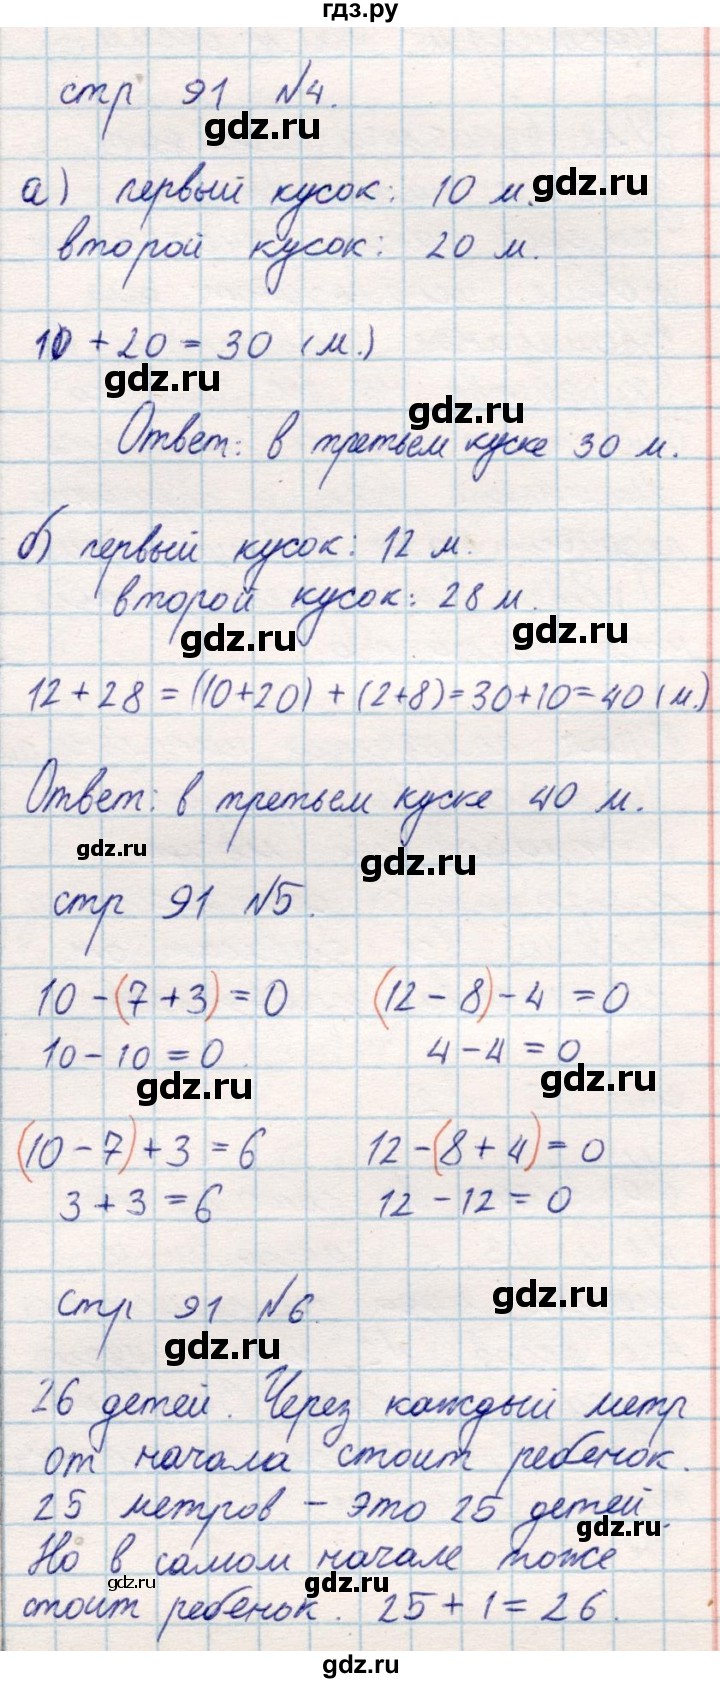 гдз.ру
стр 91 №4.
gdz.ru
а) первый кусок: 10 м.
gdz.ru
второй кусок: 20 м.
10 + 20 = 30 (м.)
gdz.ru
gdz.ru
Ответ: в третьем куске 30 м.
б) первый кусок: 12 м.
второй кусок: 28 м.
gdz.ru
gdz.ru
12 + 28 = (10+20) + (2+8) = 30+10 = 40 (м.)
Ответ: в третьем куске 40 м.
gdz.ru
gdz.ru
стр 91 №5.
10 - (7 + 3) = 0 (12 - 8) - 4 = 0
10 - 10 = 0 4 - 4 = 0
gdz.ru
gdz.ru
(10 - 7) + 3 = 6 12 - (8 + 4) = 0
3 + 3 = 6 12 - 12 = 0
стр 91 №6.
gdz.ru
gdz.ru
26 детей. Через каждый метр
от начала стоит ребенок.
25 метров - это 25 детей.
gdz.ru
Но в самом начале тоже
gdz.ru
gdz.ru
стоит ребенок. 25 + 1 = 26.
gdz.ru